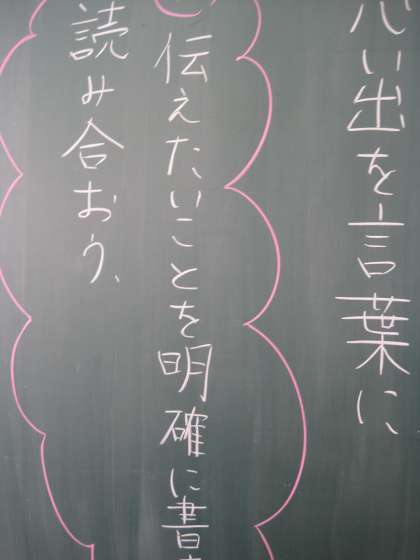 い出を言葉に
伝えたいことを明確に書
読み合おう、